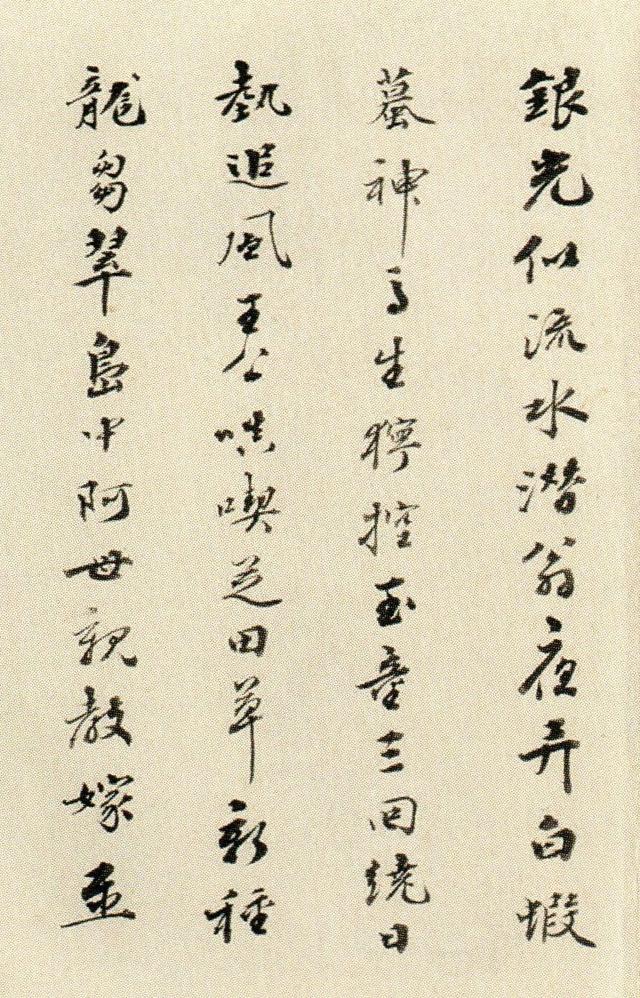 銀光似流水潛翁夜弄白蝦
蟇神馬生獰控玉童三回繞日
熱追風王公喫芝田草新種
龍芻翠島中阿母親教嫁